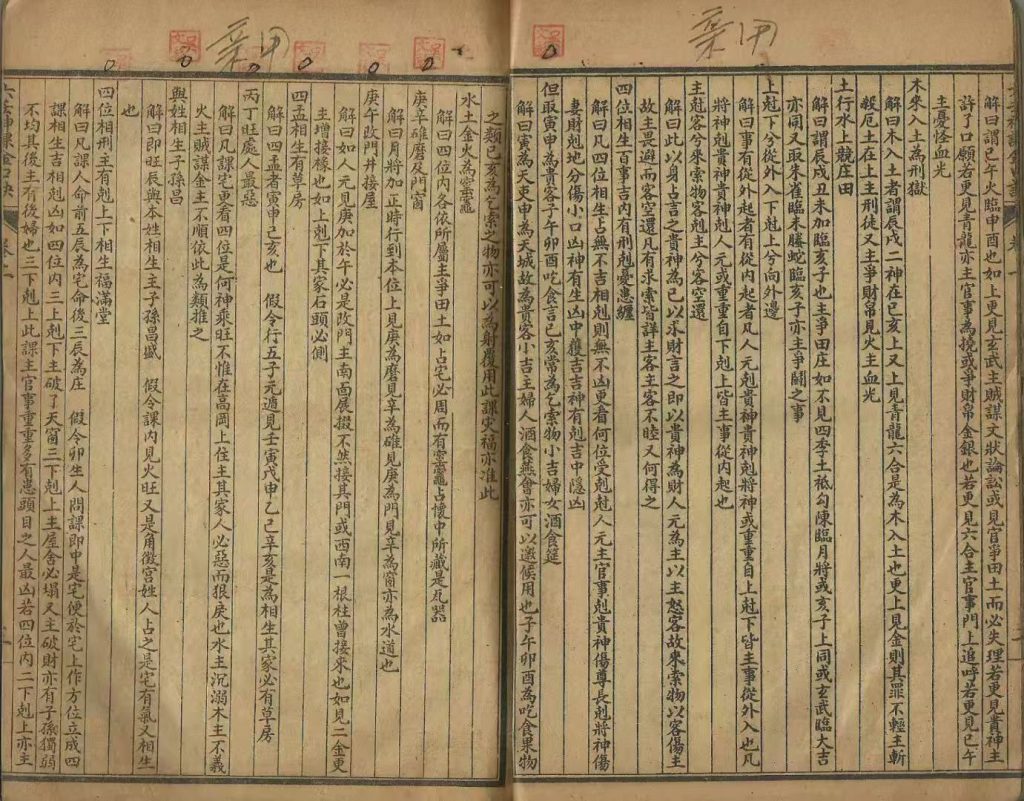 解曰謂巳午火臨申酉也如上更見玄武主賊謀文狀論訟或見官爭田土而必失理若更見貴神主
許了口願若更見青龍亦主官事為撓或爭財帛金銀也若更見六合主官事門上追呼若更見巳午
主憂怪血光
木來入土為刑獄
解曰木入土者謂辰戌二神在巳亥上又上見青龍六合是為木入土也更上見金則其罪不輕主斬
殺厄土在上主刑徒又主爭財帛見火主血光
土行水上競庄田
解曰謂辰戌丑未加臨亥子也主爭田庄如不見四季土祗勾陳臨月將或亥子上同或玄武臨大吉
亦同又取朱雀臨未螣蛇臨亥子亦主爭鬪之事
上尅下兮從外入下尅上兮向外邊
解曰事有從外起者有從內起者凡人元剋貴神剋將神或重重自上尅下皆主事從外入也凡
將神剋貴神貴神剋人元或重重自下剋上皆主事從內起也
主尅客兮來索物客剋主兮客空還
解曰此以身占言之貴神為己以求財言之即以貴神為財人元為主以主怒客故來索物以客傷主
故主畏避而客空還凡有求索皆詳主客主客不睦又何得之
四位相生百事吉內有刑剋憂患纏
解曰凡四位相生占無不吉相剋則無不凶更看何位受剋尅人元主官事剋貴神傷尊長剋將神傷
妻財剋地分傷小口凶神有生凶中獲吉吉神有剋吉中隱凶
但取寅申為貴客子午卯酉吃食言巳亥常為乞索物小吉婦女酒食筵
解曰寅為天吏申為天城故為貴客小吉主婦人酒食燕會亦可以邀候用也子午卯酉為吃食果物
之類巳亥為乞索之物亦可以為射覆用此課災福亦准此
水土金火為窰竈
解曰四位內各依所屬主爭田土如占宅必周而有窰竈占懷中所藏是瓦器
庚辛碓磨及門窗
解曰月將加正時行到本位上見庚為磨見辛為碓見庚為門見辛為窗亦為水道也
庚午改門井接屋
解曰如人元見庚加於午必是改門主南面展掇不然接其門或西南一根柱曾接來也如見二金更
主增接椽也如上剋下其家石頭必側
四孟相生有草房
解曰四孟者寅申巳亥也　假令行五子元遁見壬寅戊申乙巳辛亥是為相生其家必有草房
丙丁旺處人最惡
解曰凡課宅更看四位是何神乘旺不惟在高岡上住主其家人必惡而狠戾也水主沉溺木主不義
火主賊謀金主不順依此為類推之
與姓相生子孫昌
解曰即旺辰與本姓相生主子孫昌盛　假令課內見火旺又是角徵宮姓人占之是宅有氣又相生
也
四位相刑主有剋上下相生福滿堂
解曰凡課人命前五辰為宅命後三辰為庄　假令卯生人問課即申是宅便於宅上作方位立成四
課相生吉相剋凶如四位內三上剋下主破了天窗三下剋上主屋舍必塌又主破財亦有子孫獨弱
不均其後主有後婦也三下剋上此課主官事重重多有患頭目之人最凶若四位內二下剋上亦主